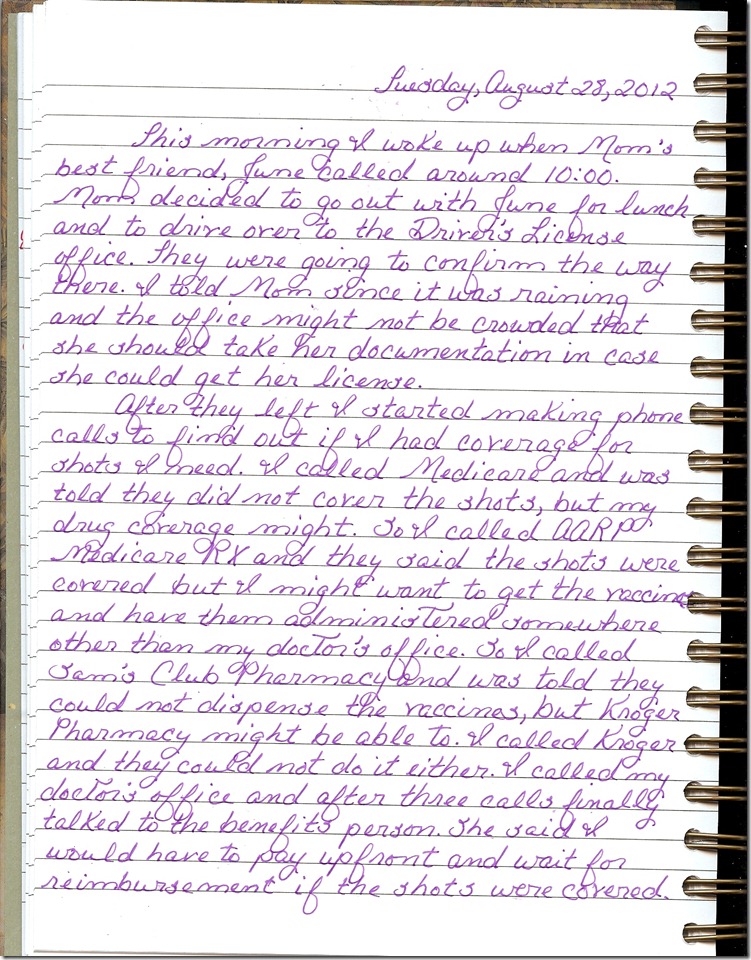 Tuesday, August 28, 2012
This morning I woke up when Mom's
best friend, June called around 10:00.
Mom decided to go out with June for lunch
and to drive over to the Driver's License
office. They were going to confirm the way
there. I told Mom since it was raining
and the office might not be crowded that
she should take her documentation in case
she could get her license.
After they left I started making phone
calls to find out if I had coverage for
shots I need. I called Medicare and was
told they did not cover the shots, but my
drug coverage might. So I called AARP
Medicare RX and they said the shots were
covered but I might want to get the vaccines
and have them administered somewhere
other than my doctor's office. So I called
Sam's Club Pharmacy and was told they
could not dispense the vaccines, but Kroger
Pharmacy might be able to. I called Kroger
and they could not do it either. I called my
doctor's office and after three calls finally
talked to the benefits person. She said I
would have to pay upfront and wait for
reimbursement if the shots were covered.